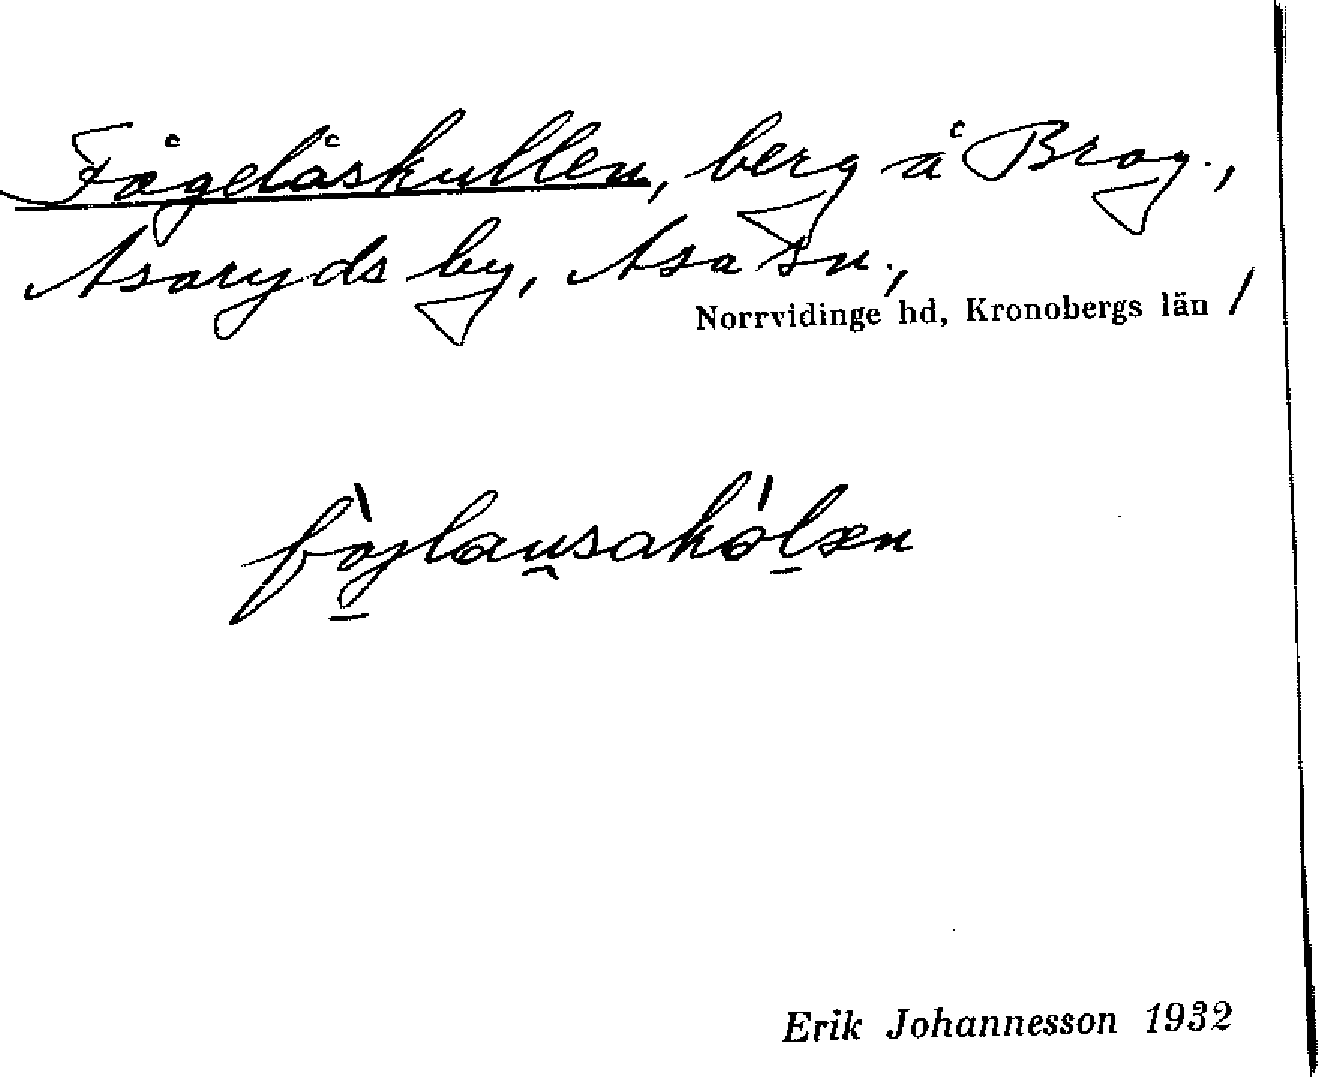 Fågelåskullen, berg å Brog.,
Asaryds by, Asa sn.,
Norrvidinge hd, Kronobergs län /
fò̱jlau̯sakó̱læn
Erik Johannesson 1932